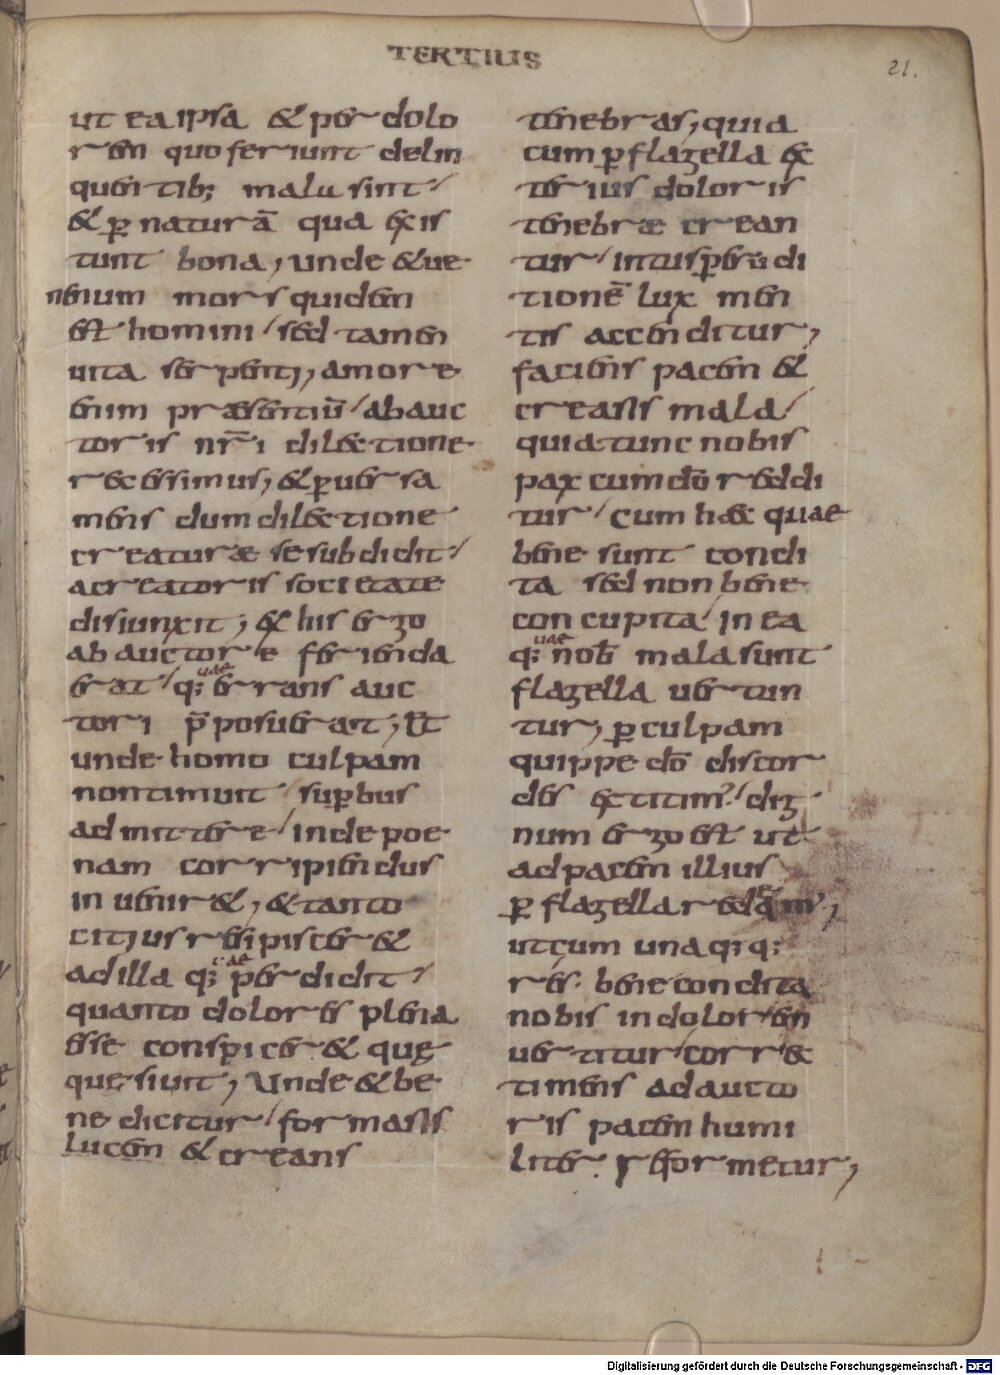 TERTIUS
21.
ut ea ipsa & per dolo
rem quo feriunt delin
quentib; mala sint
& ꝑ naturā qua exis
tunt bona, unde & ue
nenum mors quidem
est homini sed tamen
uita serpenti, amore
enim præsentiū ab auc
toris nr̄i dilectione
recessimus, & ꝑuersa
mens dum dilectione
creaturæ se subdidit
a creatoris societate
disiunxit, ex his ergo
ab auctore ferienda
erat q; errans auc
uae
tori p̄posuerat, Ut
unde homo culpam
non timuit suꝑbus
admittere inde poe
nam corripiendus
inueniret, & tanto
citius resipisceret
ad illa q; perdidit
cae
quanto doloris plena
esse conspiceret quę
quęsiuit, Unde & be
ne dicitur formans
lucem & creans
tenebras, quia
cum ꝑ flagella ex
terius doloris
tenebræ crean
tur intus ꝑ eru di
tionē lux men
tis accenditur,
faciens pacem &
creans mala
quia tunc nobis
pax cum dō reddi
tur cum haec quae
bene sunt condi
ta sed non bene
concupita in ea
q; nob̄ mala sunt
uae
flagella uertun
tur, ꝑ culpam
quippe dō discor
des extitim' dig
num ergo est ut
ad pacem illius
ꝑ flagella redeam',
ut cum una q;q;
res bene condita
nobis in dolorem
uertitur correc
ti mens ad aucto
ris pacem humi
liter reformetur,
Digitalisierung gefördert durch die Deutsche Forschungsgemeinschaft - DFG